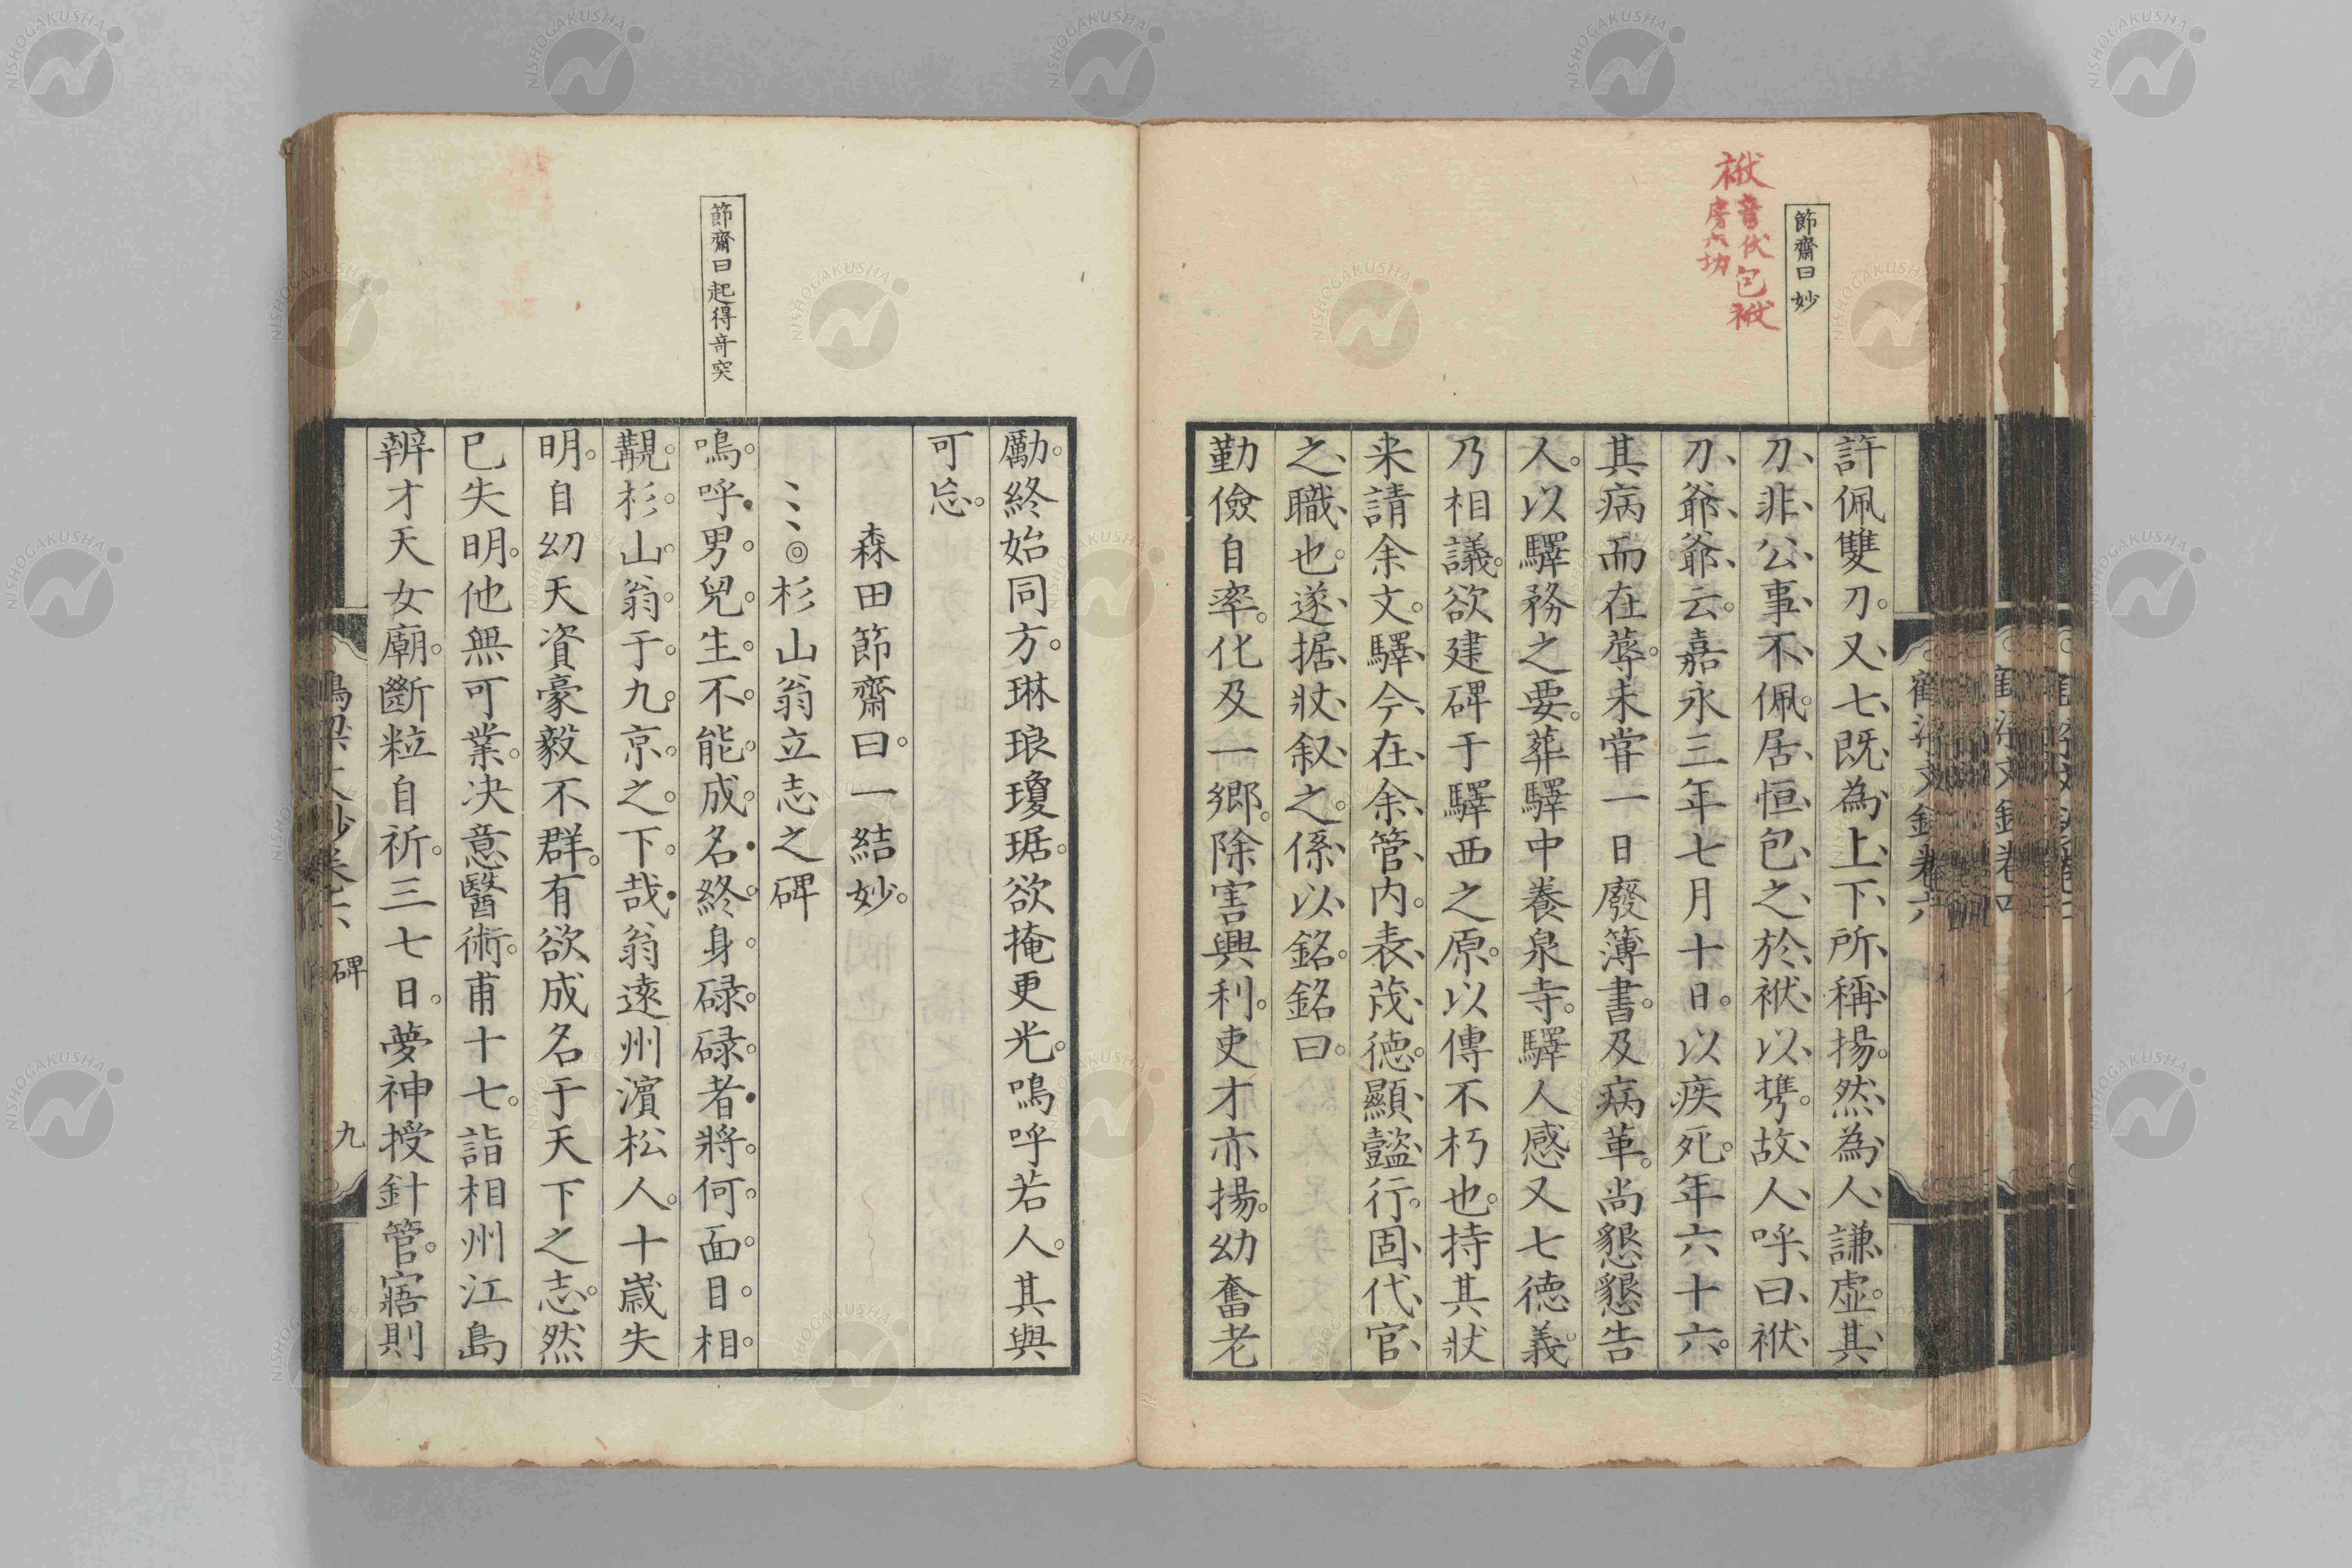 節齋曰妙
袱音伏包袱
房六切
許佩雙刀。又七既為上下所稱揚。然為人謙虛。其
刀非公事不佩。居恒包之於袱以携。故人呼曰袱
刀爺爺云。嘉永三年七月十日。以疾死。年六十六。
其病而在蓐。未甞一日廢簿書。及病革。尚懇懇告
人。以驛務之要。葬驛中養泉寺。驛人感又七德義。
乃相議。欲建碑于驛西之原。以傳不朽也。持其狀
来請余文。驛今在余管内。表茂德。顯懿行。固代官
之職也。遂据狀叙之。係以銘。銘曰。
勤儉自率。化及一鄉。除害興利。吏才亦揚。幼奮老
節齋曰起得奇突
勵。終始同方。琳琅瓊琚。欲掩更光。嗚呼若人。其與
可忘。
森田節齋曰。一結妙。
◎杉山翁立志之碑
嗚呼男兒生不能成名。終身碌碌者。將何面目。相
覯杉山翁于九京之下哉。翁遠州濵松人。十歲失
明。自幼天資豪毅不群。有欲成名于天下之志。然
已失明。他無可業。决意醫術。甫十七。詣相州江島
辨才天女廟。斷粒自祈。三七日。夢神授針管。寤則
碑
九
NISHOGAKUSHA